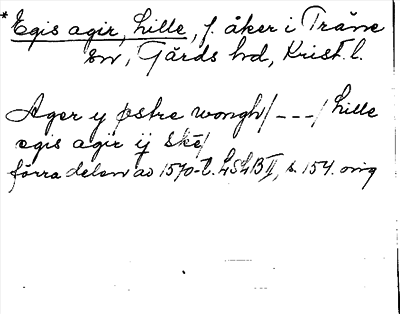 * Egis agir, Lille, f. åker i Träne
sn, Gärds hd, Krist. l.
Ager y østre wongh/ _ _ _ / Lille
egis agir ij skē/
förra delen av 1570-t. LSLB II, s. 154. orig